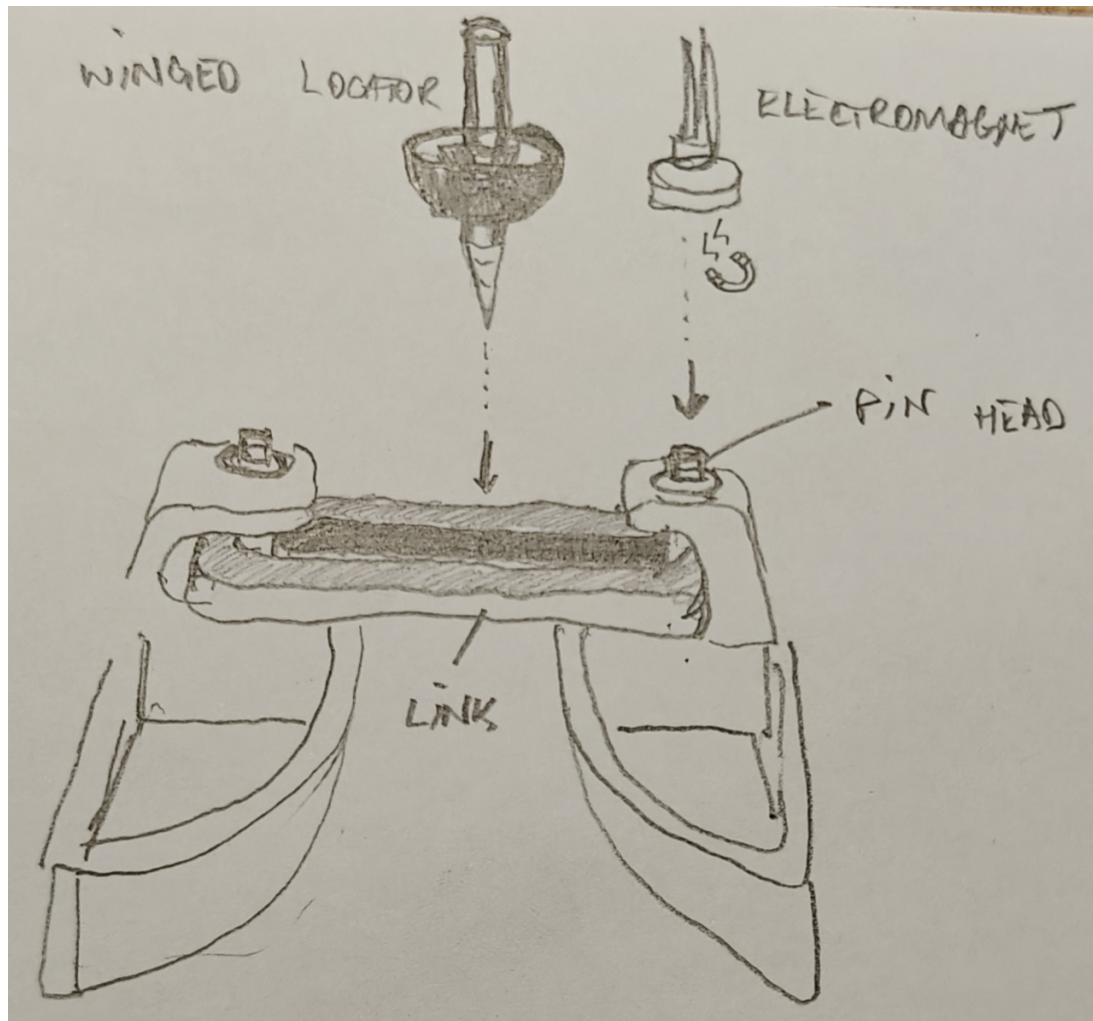 WINGED LOCATOR
ELECTROMAGNET
PIN HEAD
LINK